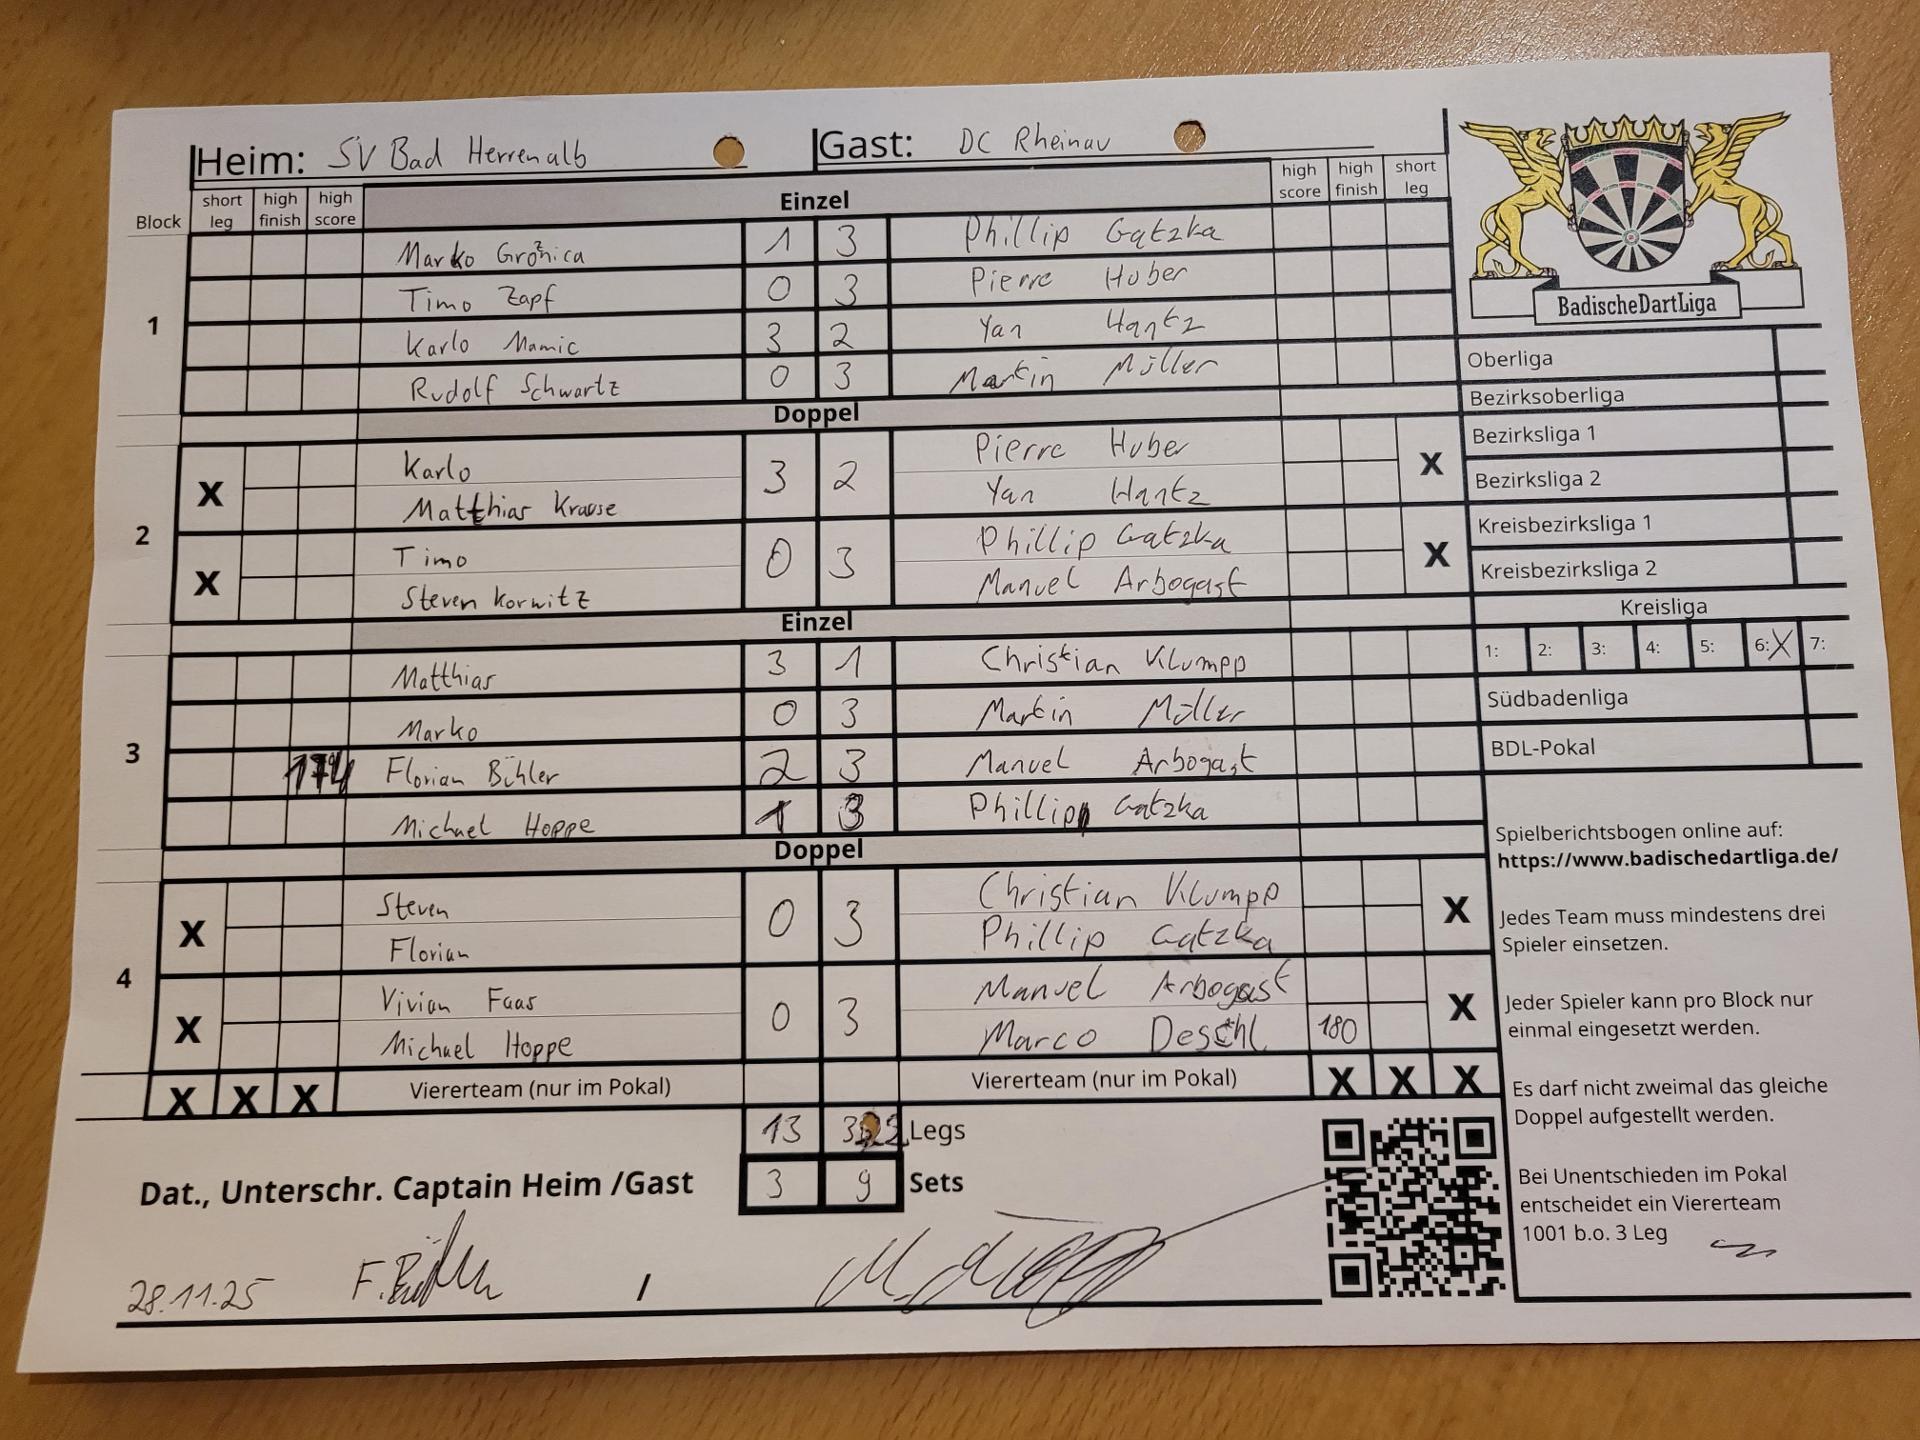 Heim: SV Bad Herrenalb Gast: DC Rheinau
Block short leg high finish high score Einzel high score high finish short leg
1
Marko Grožnica 1 3 Phillip Gatzka
Timo Zapf 0 3 Pierre Huber
Karlo Mamic 3 2 Yan Hantz
Rudolf Schwartz 0 3 Martin Müller
Doppel
2
X Karlo 3 2 Pierre Huber X
Matthias Krause Yan Hantz
X Timo 0 3 Phillip Gatzka X
Steven Korwitz Manuel Arbogast
Einzel
3
Matthias 3 1 Christian Klumpp
Marko 0 3 Martin Müller
174 Florian Bühler 2 3 Manuel Arbogast
Michael Hoppe 1 3 Phillip Gatzka
Doppel
4
X Steven 0 3 Christian Klumpp X
Florian Phillip Gatzka
X Vivian Faas 0 3 Manuel Arbogast X
Michael Hoppe Marco Deschl 180
X X X Viererteam (nur im Pokal) Viererteam (nur im Pokal) X X X
13 Legs
Dat., Unterschr. Captain Heim /Gast 3 9 Sets
28.11.25 /
BadischeDartLiga
Oberliga
Bezirksoberliga
Bezirksliga 1
Bezirksliga 2
Kreisbezirksliga 1
Kreisbezirksliga 2
Kreisliga
1: 2: 3: 4: 5: 6: X 7:
Südbadenliga
BDL-Pokal
Spielberichtsbogen online auf:
https://www.badischedartliga.de/
Jedes Team muss mindestens drei
Spieler einsetzen.
Jeder Spieler kann pro Block nur
einmal eingesetzt werden.
Es darf nicht zweimal das gleiche
Doppel aufgestellt werden.
Bei Unentschieden im Pokal
entscheidet ein Viererteam
1001 b.o. 3 Leg